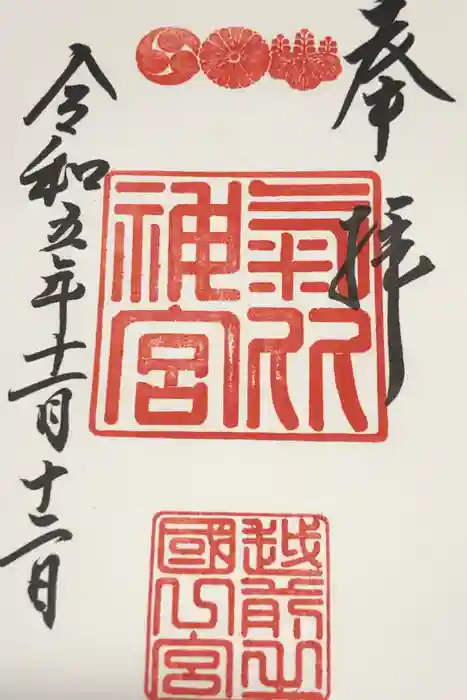 奉拝
氣比
神宮
越前一
國一宮
令和五年十一月十二日